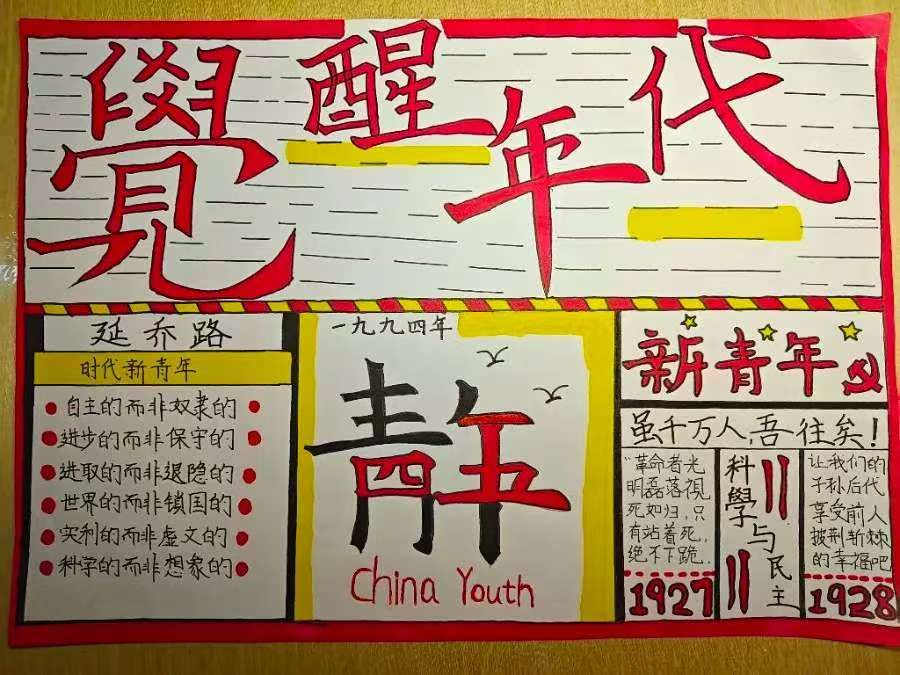 覺醒年代
延乔路
时代新青年
自主的而非奴隶的
进步的而非保守的
进取的而非退隐的
世界的而非锁国的
实利的而非虚文的
科学的而非想象的
一九九四年
青年
四五
China Youth
新青年
虽千万人,吾往矣!
"革命者光
明磊落視
死如归,只
有站着死,
绝不下跪.
1927
科學与民主
让我们的
子孙后代
享受前人
披荆斩棘
的幸福吧
1928